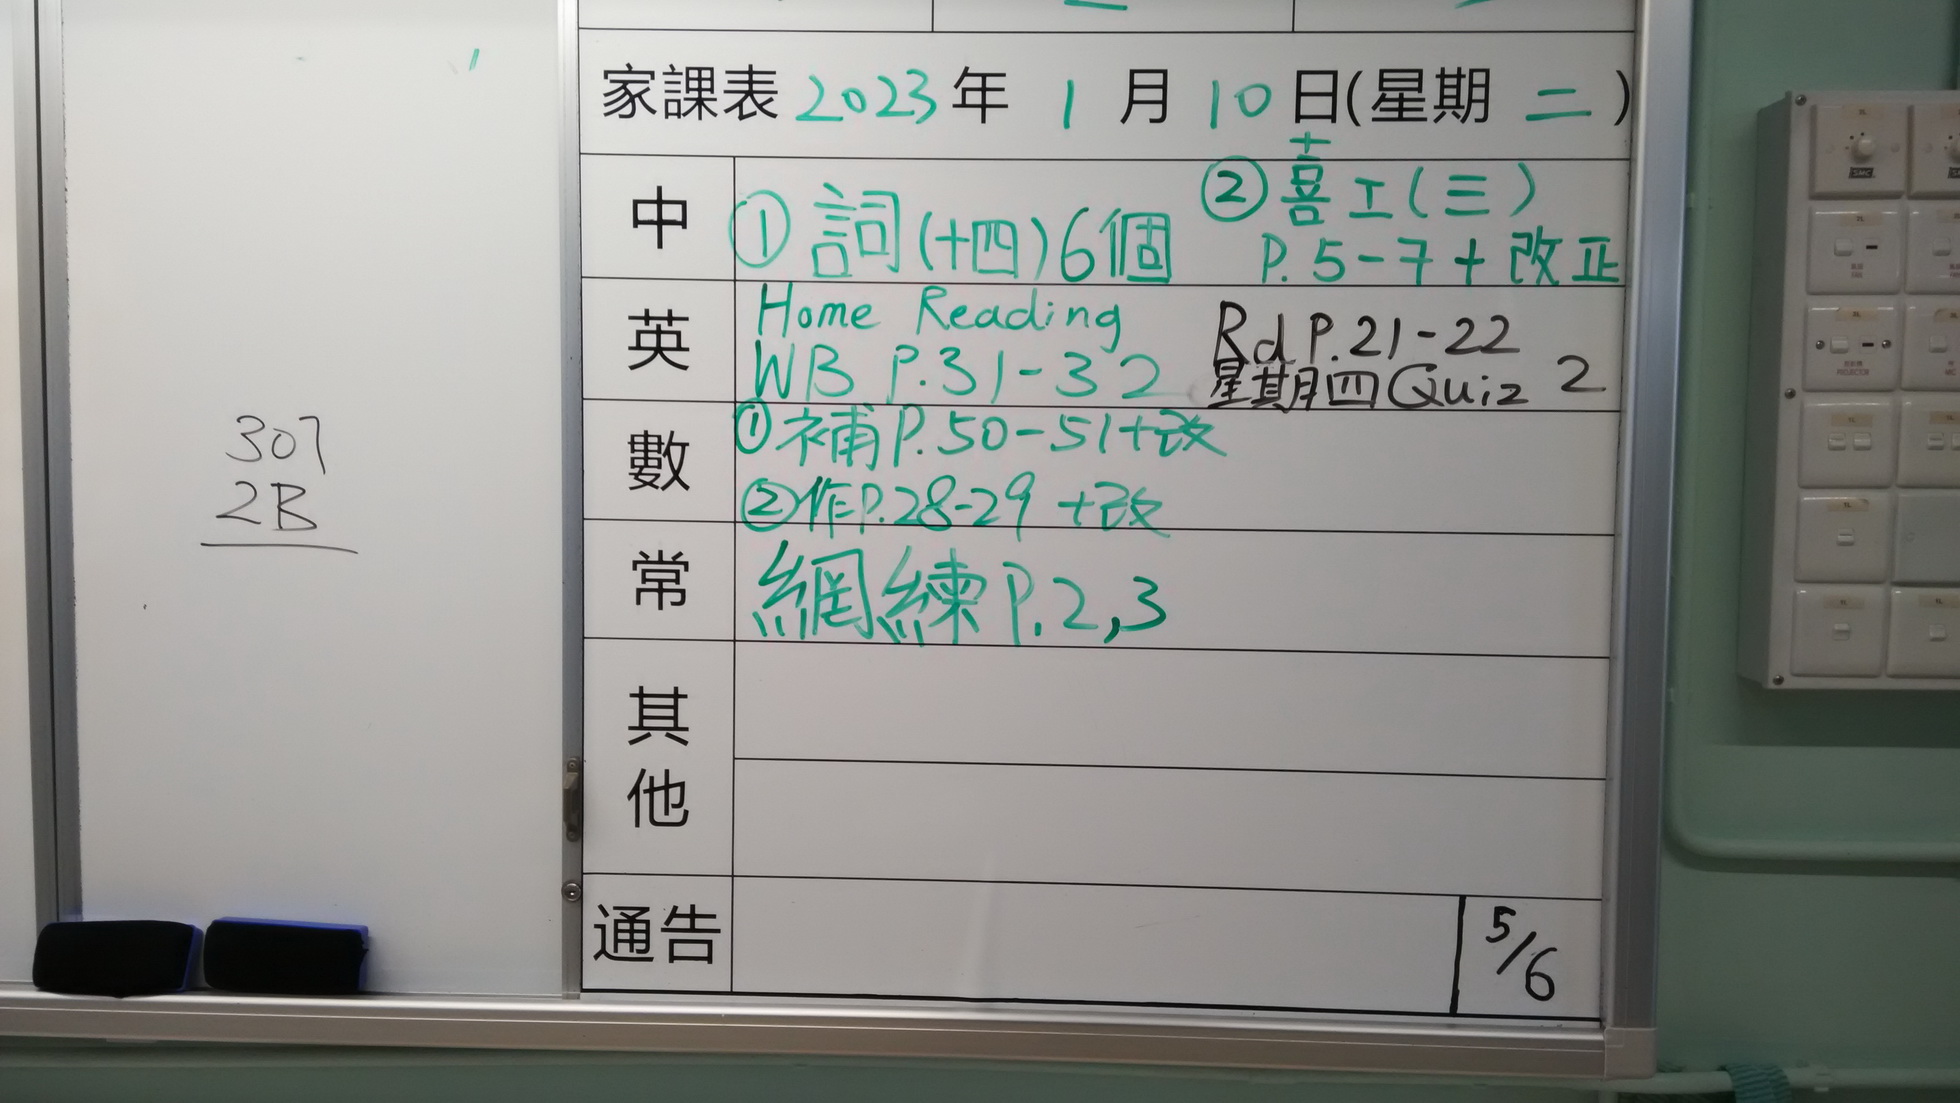 307
2B
家課表 2023 年 1 月 10 日(星期 二 )
中
① 詞(十四)6個
② 喜工(三)
P.5-7+改正
英
Home Reading
WB P.31-32
Rd P.21-22
星期四 Quiz 2
數
①補P.50-51+改
②作P.28-29 +改
常
網練P.2,3
其他
通告
5/6